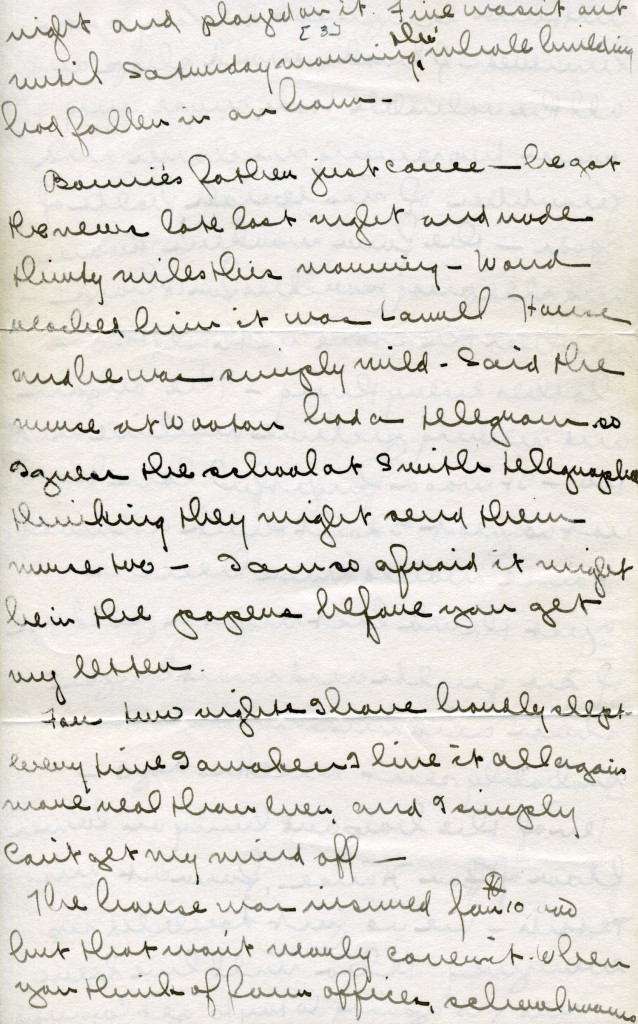 night and played on it. Fire wasn't out
[3]
until Saturday morning, the whole building
had fallen in an hour -
Bonnie's father just came - he got
the news late last night and rode
thirty miles this morning - Word
reached him it was Laurel House
and he was simply wild - Said the
nurse at Wooton had a telegram so
I guess the school at Smith telegraphed
thinking they might send their
nurse too - I am so afraid it might
be in the papers before you get
my letter.
For two nights I have hardly slept
every time I awaken I live it all again
more real than ever, and I simply
can't get my mind off -
The house was insured for $10,000
but that won't nearly cover it. When
you think of four offices, schoolrooms